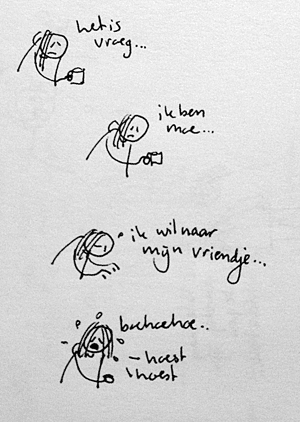 het is
vroeg...
ik ben
moe...
ik wil naar
mijn vriendje...
boehoehoe..
- hoest
\ hoest